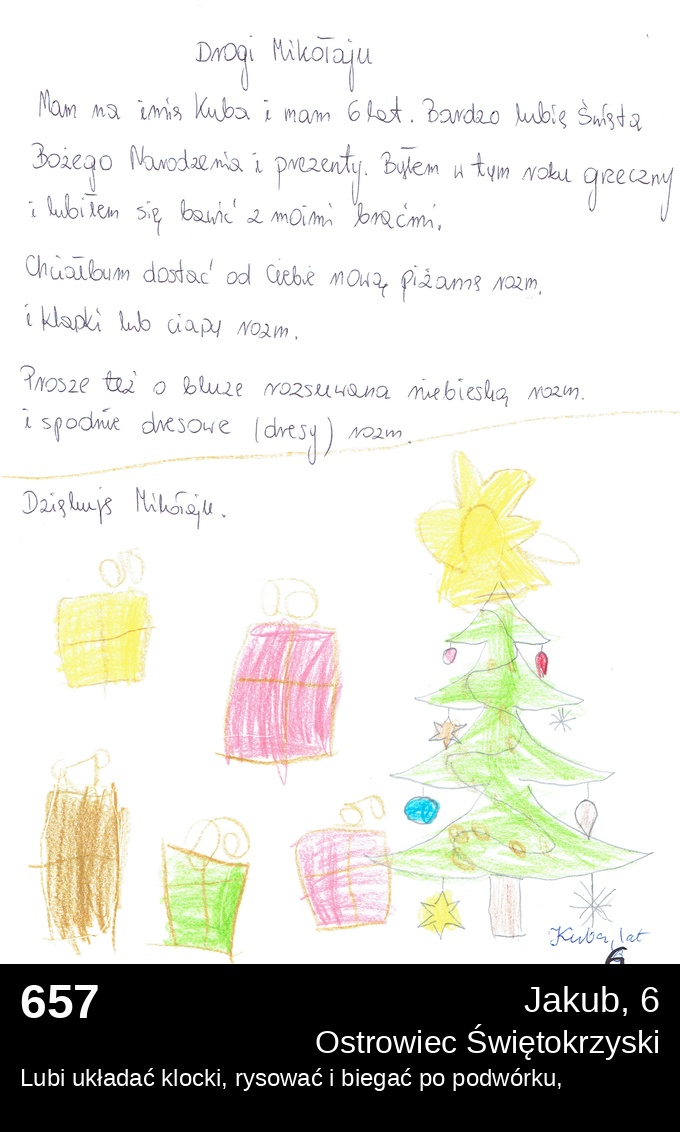 Drogi Mikołaju
Mam na imię Kuba i mam 6 lat. Bardzo lubię Święta
Bożego Narodzenia i prezenty. Byłem w tym roku grzeczny
i lubiłem się bawić z moimi braćmi.
Chciałbum dostać od Ciebie nową piżamę rozm.
i klapki lub ciapy rozm.
Prosze też o bluze rozsuwana niebieską rozm.
i spodnie dresowe (dresy) rozm.
Dziękuję Mikołaju.
Kuba, lat
6
657
Jakub, 6
Ostrowiec Świętokrzyski
Lubi układać klocki, rysować i biegać po podwórku,